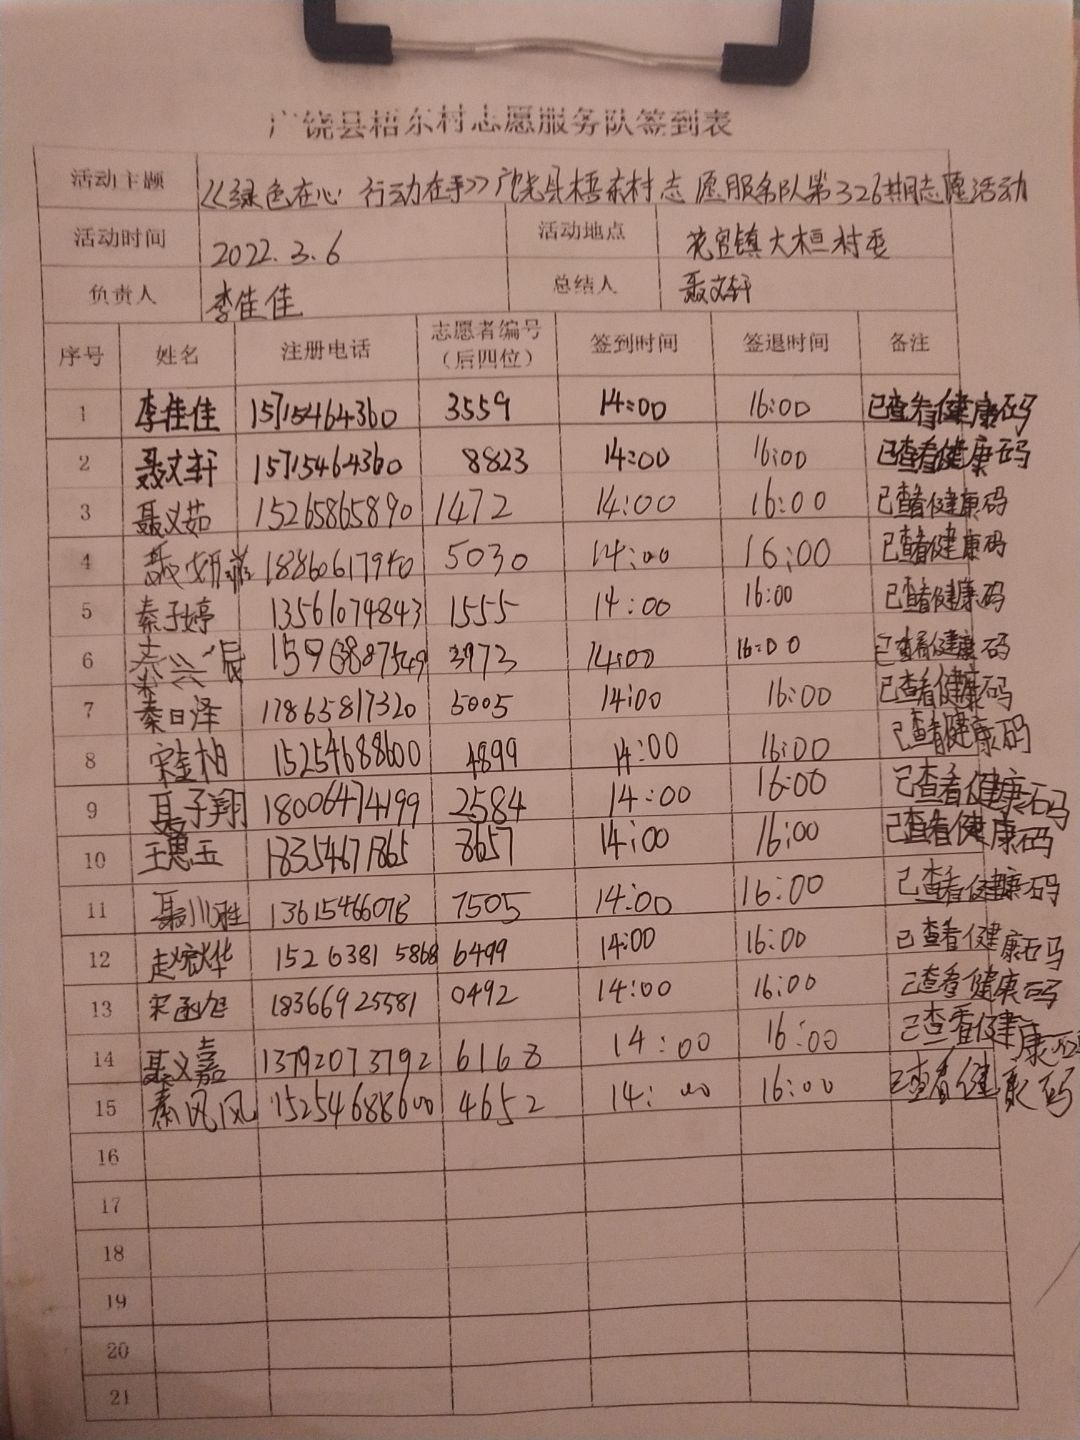 广饶县梧东村志愿服务队签到表
活动主题 《绿色在心 行动在手》广饶县梧东村志愿服务队第326期志愿活动
活动时间 2022.3.6 活动地点 花官镇大桓村委
负责人 李佳佳 总结人 聂文轩
序号 姓名 注册电话 志愿者编号（后四位） 签到时间 签退时间 备注
1 李佳佳 15715464360 3559 14:00 16:00 已查看健康码
2 聂文轩 15715464360 8823 14:00 16:00 已查看健康码
3 聂义茹 15265865890 1472 14:00 16:00 已查看健康码
4 18860617940 5030 14:00 16:00 已查看健康码
5 秦子婷 13561074843 1555 14:00 16:00 已查看健康码
6 3973 14:00 16:00 已查看健康码
7 秦日泽 17865817320 5005 14:00 16:00 已查看健康码
8 15254688600 4899 14:00 16:00 已查看健康码
9 聂子翔 18006474199 2584 14:00 16:00 已查看健康码
10 王思玉 18354671865 3657 14:00 16:00 已查看健康码
11 聂川胜 13615466078 7505 14:00 16:00 已查看健康码
12 15263815868 6499 14:00 16:00 已查看健康码
13 宋函旭 18366925581 0492 14:00 16:00 已查看健康码
14 聂义嘉 13792073792 6168 14:00 16:00 已查看健康码
15 秦风风 15254688600 4652 14:00 16:00 已查看健康码
16
17
18
19
20
21